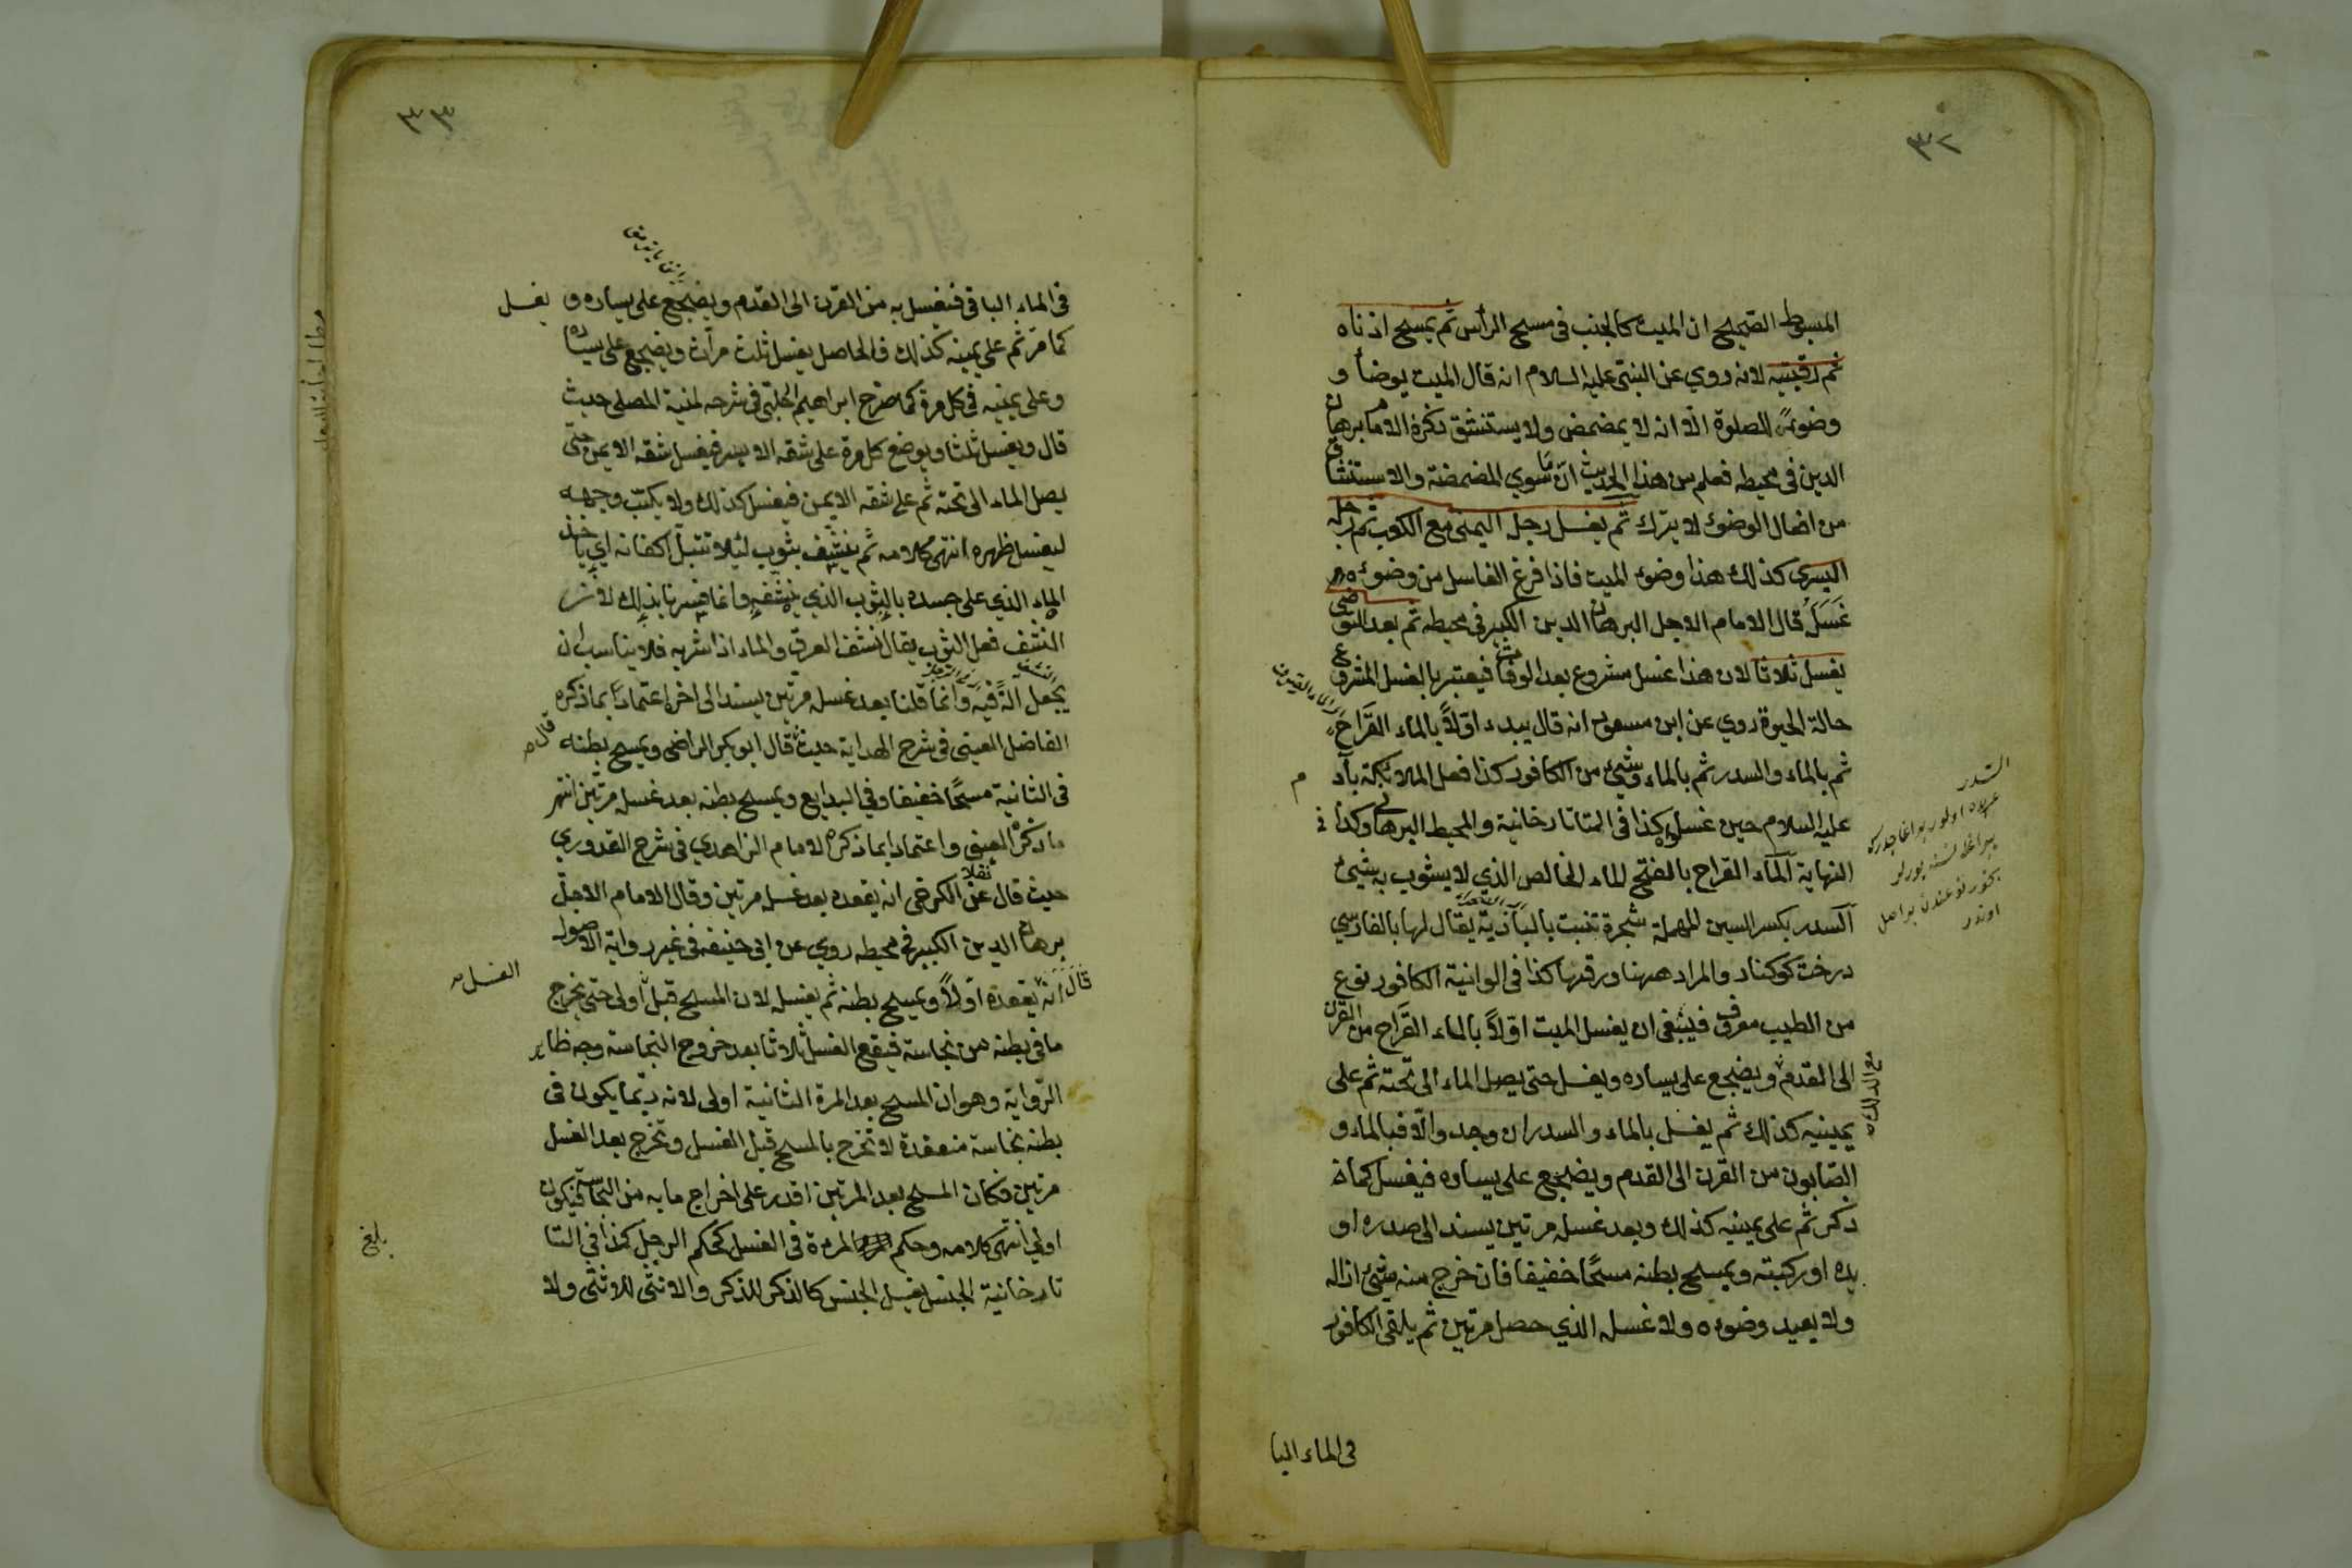 ٣٢
المبسوط الصحيح ان الميت كالجنب فى مسح الرأس ثم يمسح اذناه
ثم رقبته لانه روي عن النبى عليه السلام انه قال الميت يوضأ و
وضوئه للصلوة الا انه لا يمضمض ولا يستنشق ذكره الامام برهان
الدين فى محيطه فعلم من هذا الحديث ان ما سوي المضمضة والاستنشاق
من افعال الوضوء لا يترك ثم يغسل رجله اليمنى مع الكعب ثم رجله
اليسرى كذلك هذا وضوء الميت فاذا فرغ الغاسل من وضوئه
غسله قال الامام الاجل البرهان الدين الكبير فى محيطه ثم بعد التوضى
يغسل ثلاثا لان هذا غسل مشروع بعد الوفات فيعتبر بالغسل المشروع
حالة الحيوة روي عن ابن مسعود انه قال يبدء اولاً بالماء القَرَاح
ثم بالماء والسدر ثم بالماء وشئ من الكافور كذا فعل الملائكة بآدم
عليه السلام حين غسلوه كذا فى التاتارخانية والمحيط البرهانى وكذا فى
النهاية آلماء القراح بالفتح الماء الخالص الذي لا يشوب به شيئ
آلسدر بكسر السين المهملة شجرة تنبت بالبادية يقال لها بالفارسي
درخت كوكنار والمراد ههنا ورقها كذا فى الوانية الكافور نوع
من الطيب معروف فينبغى ان يغسل الميت اولاً بالماء القَرَاح من القرن
الى القدم ويضجع على يساره ويغسل حتى يصل الماء الى تحته ثم على
يمينيه كذلك ثم يغسل بالماء والسدر ان وجد والا فبالماء و
الصابون من القرن الى القدم ويضجع على يساره فيغسل كما
ذكر ثم على يمينيه كذلك وبعد غسله مرتين يسند الى صدره او
يده او ركبته ويمسح بطنه مسحًا خفيفا فان خرج منه شئ ازاله
ولا يعيد وضوءه ولا غسله الذي حصل مرتين ثم يلقى الكافور
فى الماء البا
السدر
مع الدلك
٣٣
فى الماء الباقى فيغسل به من القرن الى القدم ويضجع على يساره و يغسل
كما مرّ ثم على يمينه كذلك فالحاصل يغسل ثلث مرات ويضجع على يساره
وعلى يمينيه فى كل مرة كما صرح ابراهيم الحلبى فى شرحه لمنية المصلى حيث
قال ويغسل ثلثا ويوضع كل مرة على شقه الايسر فيغسل شقه الايمن حتى
يصل الماء الى تحته ثم على شقه الايمن فيغسل كذلك ولا يكبّ وجهه
ليغسل ظهره انتهى كلامه ثم ينشف بثوب لئلا تتبل اكفانه اي يأخذ
الماء الذي على جسده بالثوب الذي ينشفه وانما فسرنا بذلك لان
النشف فعل الثوب يقال نشف العرق والماء اذا شربه فلا يناسب ان
يجعل الة فيه وانما قلنا بعد غسله مرتين يسند الى اخره اعتمادا بما ذكره
الفاضل العينى فى شرح الهداية حيث قال ابو بكر الراضى ويمسح بطنه
فى الثانية مسحًا خفيفا وفي البدايع ويمسح بطنه بعد غسله مرتين انتهى
ما ذكره العينى واعتمادا بما ذكره الامام الزاهدي فى شرح القدوري
حيث قال نقلا عن الكرخى انه يقعده بعد غسله مرتين وقال الامام الاجل
برهان الدين الكبير فى محيطه روي عن ابى حنيفه فى غير رواية الاصول
قال انه يقعده اوّلاً ويمسح بطنه ثم يغسله لان المسح قبل الغسل اولى حتى يخرج
ما فى بطنه من نجاسة فيقع الغسل ثلاثا بعد خروج النجاسة وجه ظاهر
الرواية وهو ان المسح بعد المرة الثانية اولى لانه ربما يكون فى
بطنه نجاسة منعقدة لا تخرج بالمسح قبل الغسل وتخرج بعد الغسل
مرتين فكان المسح بعد المرتين اقدر على اخراج ما به من النجاسة فيكون
اولى انتهى كلامه وحكم المرءة فى الغسل كحكم الرجل كذا فى التا
تارخانية الجنس يغسل الجنس كالذكر للذكر والانثى للانثى ولا